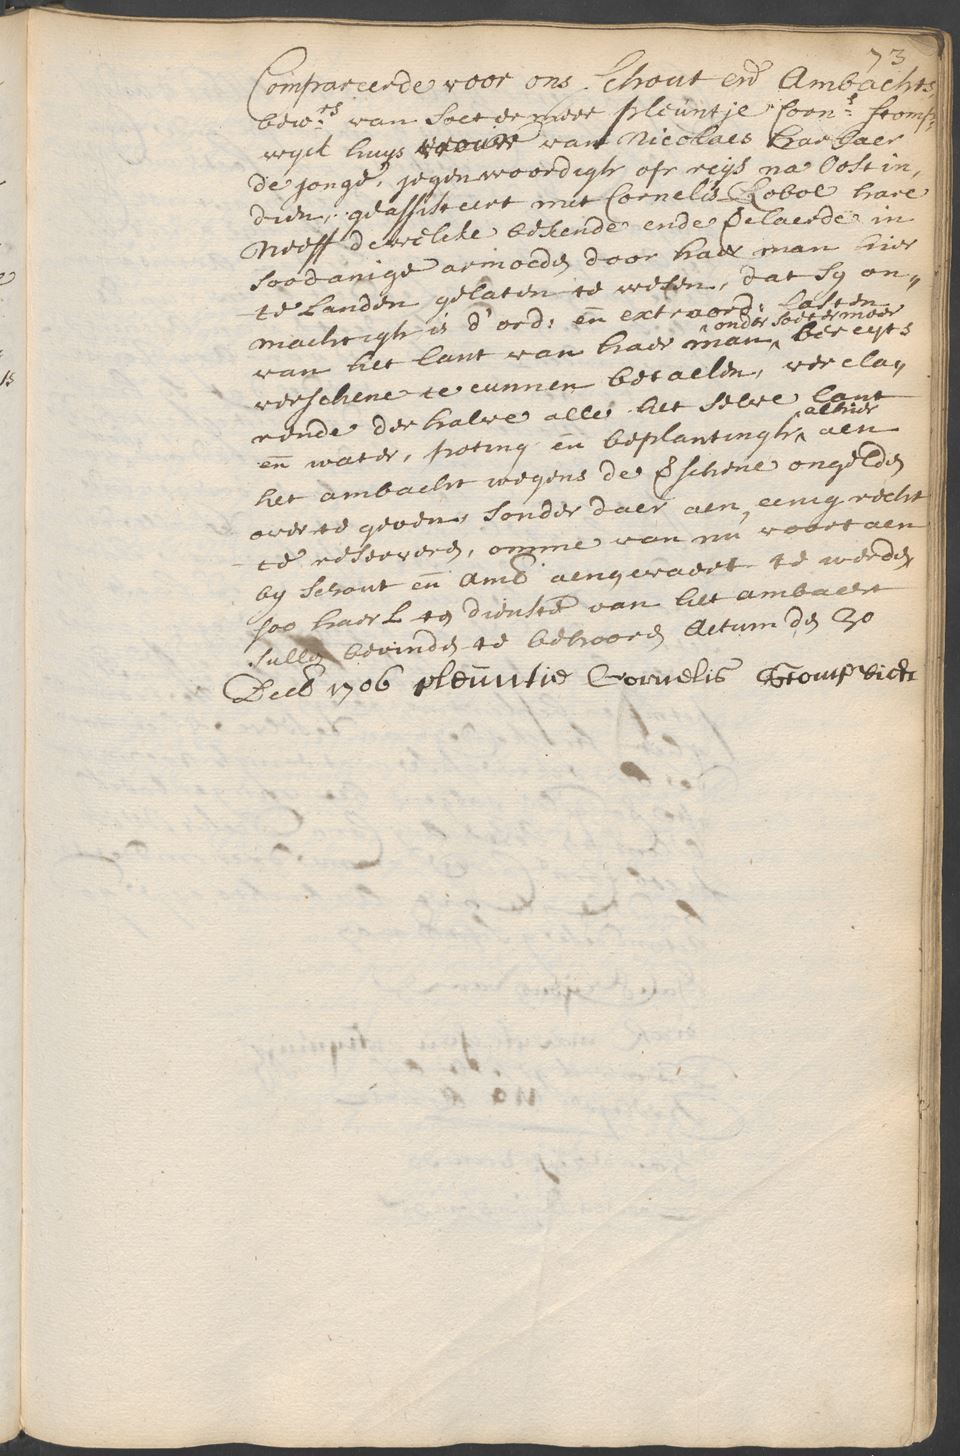 73
Compareerde voor ons Schout end Ambachts
bew:rs van Soetermeer pleuntje Corn:s stomp
wyck huys vrouw van Nicolaes Harlaer
de jonge, jegenwoordigh opr reys na Oost in,
dien, geassisteert met Cornelis Robol hare
Neeff dewelcke bekende ende verclaerde in
soodanige armoede door haer man hier
te Landen gelaten te wesen, dat sy on,,
machtigh is d'ord: en extraord: Lasten
van het lant van haer man onder Soetermeer bereyts
verschene te cunnen betaelen, vercla,,
rende derhalve alle het selve lant
en water, poting en beplantingh alhier aen
het ambacht wegens de verschene ongelden
over te geven, sonder daer aen eenig recht
te reserveren, omme van nu voort aen
by Schout en Amb aengevaert te werden
soo haer L ten dienste van het ambacht
sullen bevinden te behooren Actum den 30
Decb 1706 pleuntie Cornelis Stompwick